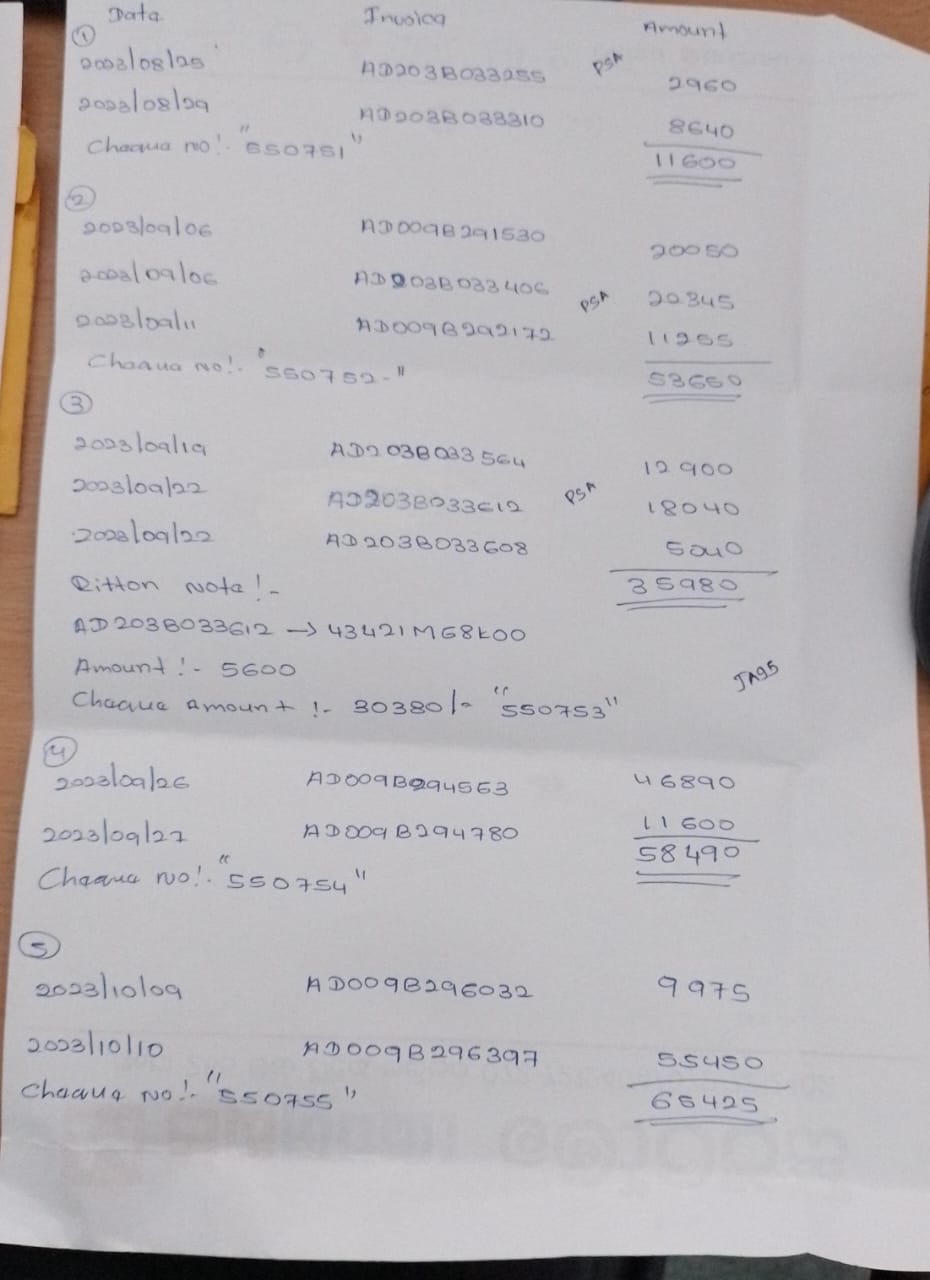 Data Invoice Amount
①
2023/08/25 AD203B033255 PSA 2960
2023/08/29 AD203B033310 8640
Chaqua no!- "550751" 11600
②
2023/09/06 AD009B291530 20050
2023/09/06 AD203B033406 PSA 22345
2023/09/11 AD009B292172 11255
Chaqua no!- "550752-" 53650
③
2023/09/19 AD203B033564 12900
2023/09/22 AD203B033612 PSA 18040
2023/09/22 AD203B033608 5040
Ritton Nota!- 35980
AD203B033612 → 43421M68K00
Amount!- 5600
Chaqua Amount!- 30380/- "550753" JA95
④
2023/09/26 AD009B294563 46890
2023/09/27 AD009B294780 11600
Chaqua no!- "550754" 58490
⑤
2023/10/09 AD009B296032 9975
2023/10/10 AD009B296397 55450
Chaqua No!- "550755" 65425